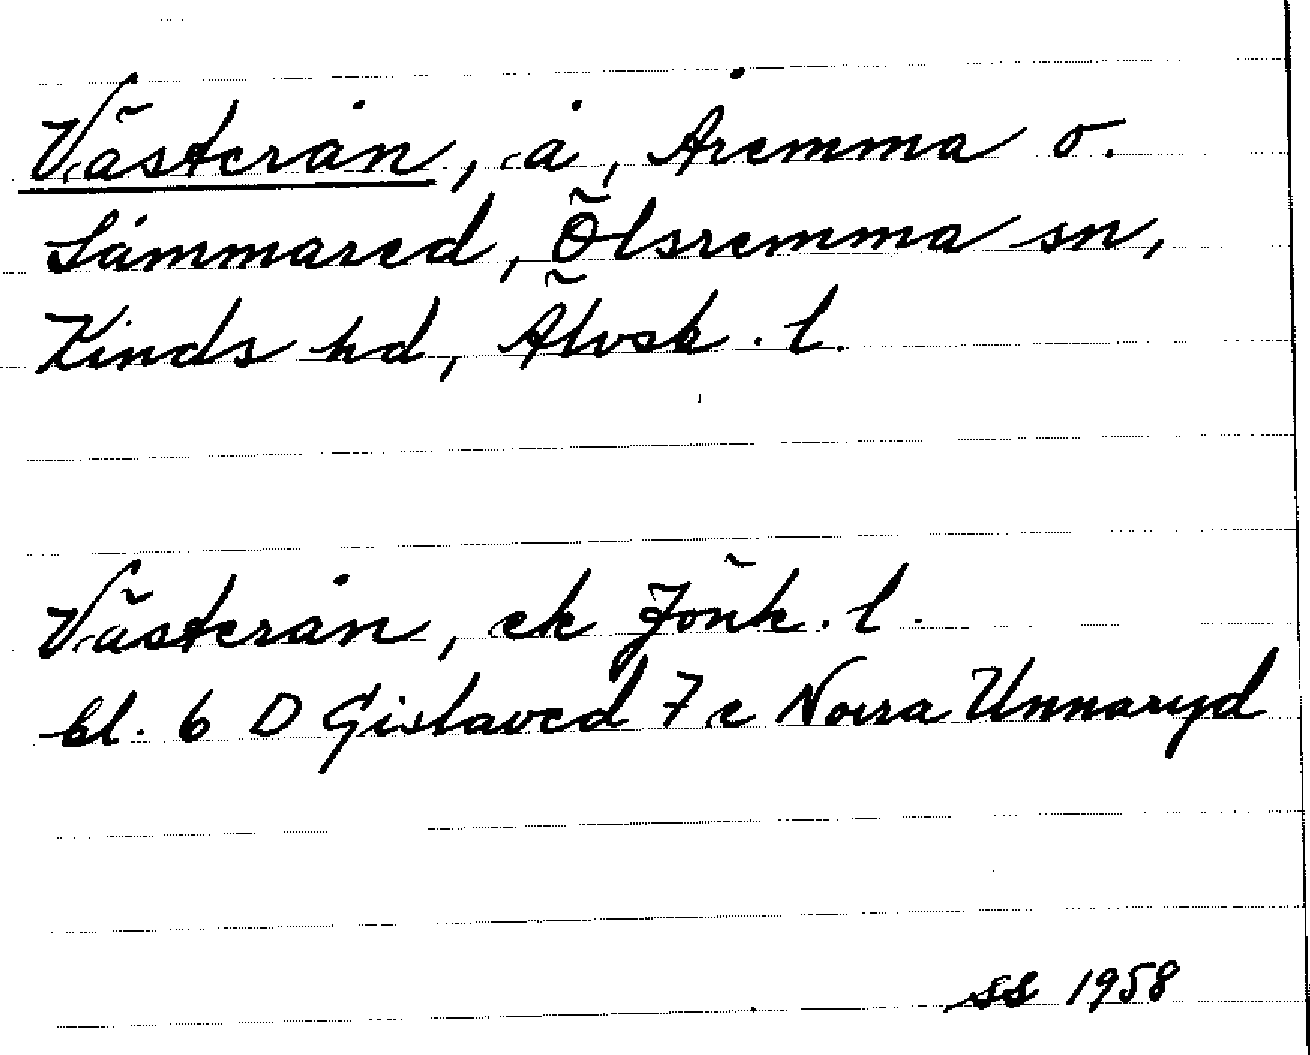 Västerån, å, Åremma o.
Låmmared, Ölsremma sn,
Kinds hd, Älvsb. l.
Västerån, ek Jönk. l.
bl. 6 D Gislaved 7 c Norra Unnaryd
SS 1958